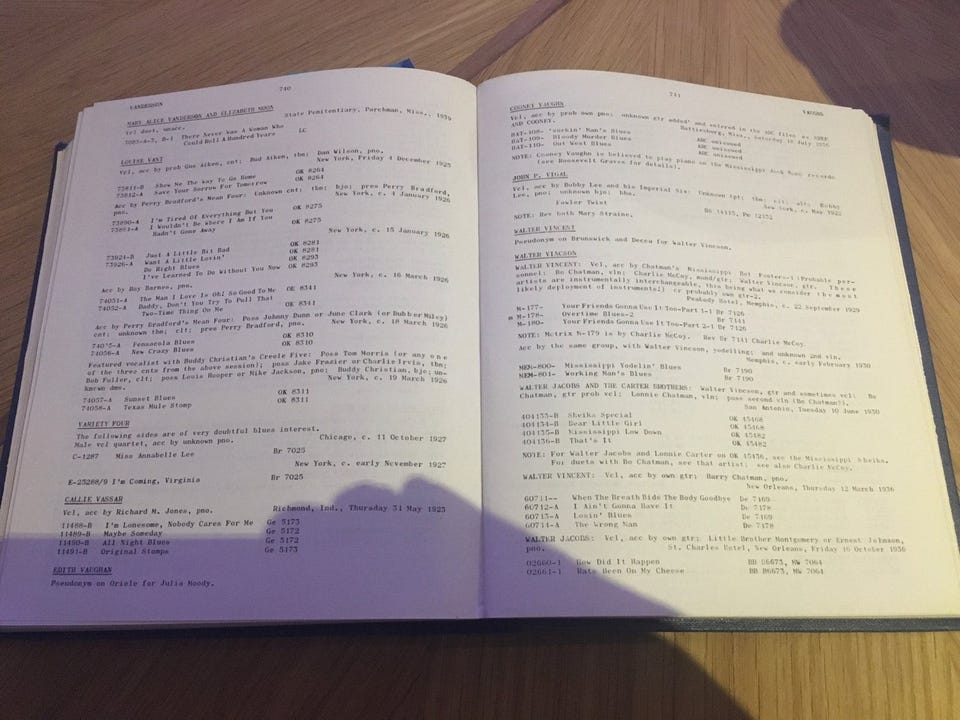 740
VANDERSON
MARY ALICE VANDERSON AND ELIZABETH MOON
Vcl duet, unacc. State Penitentiary, Parchman, Miss., 1939
3083-A-3, B-1 There Never Was A Woman Who LC
Could Roll A Hundred Years
LOUISE VANT
Vcl, acc by prob Gus Aiken, cnt; Bud Aiken, tbn; Dan Wilson, pno.
New York, Friday 4 December 1925
73811-B Show Me The Way To Go Home OK 8264
73812-A Save Your Sorrow For Tomorrow OK 8264
Acc by Perry Bradford's Mean Four: Unknown cnt; tbn; bjo; pres Perry Bradford,
pno. New York, c. 4 January 1926
73890-A I'm Tired Of Everything But You OK 8275
73891-A I Wouldn't Be Where I Am If You OK 8275
Hadn't Gone Away
New York, c. 15 January 1926
73924-B Just A Little Bit Bad OK 8281
73926-A Want A Little Lovin' OK 8281
Do Right Blues OK 8293
I've Learned To Do Without You Now OK 8293
New York, c. 16 March 1926
Acc by Ray Barnes, pno.
74051-A The Man I Love Is Oh! So Good To Me OK 8341
74052-A Daddy, Don't You Try To Pull That OK 8341
Two-Time Thing On Me
Acc by Perry Bradford's Mean Four: Poss Johnny Dunn or June Clark (or Bubber Miley)
cnt; unknown tbn; clt; pres Perry Bradford, pno. New York, c. 18 March 1926
Pensacola Blues OK 8310
74056-A New Crazy Blues OK 8310
Featured vocalist with Buddy Christian's Creole Five: Poss Tom Morris (or any one
of the three cnts from the above session); poss Jake Frazier or Charlie Irvis, tbn;
Bob Fuller, clt; poss Louis Hooper or Mike Jackson, pno; Buddy Christian, bjo; un-
known dms. New York, c. 19 March 1926
74057-A Sunset Blues OK 8311
74058-A Texas Mule Stomp OK 8311
VARIETY FOUR
The following sides are of very doubtful blues interest.
Male vcl quartet, acc by unknown pno. Chicago, c. 11 October 1927
C-1287 Miss Annabelle Lee Br 7025
New York, c. early November 1927
E-25288/9 I'm Coming, Virginia Br 7025
CALLIE VASSAR
Vcl, acc by Richard M. Jones, pno. Richmond, Ind., Thursday 31 May 1923
11488-B I'm Lonesome, Nobody Cares For Me Ge 5173
11489-B Maybe Someday Ge 5172
11490-B All Night Blues Ge 5172
11491-B Original Stomps Ge 5173
EDITH VAUGHAN
Pseudonym on Oriole for Julia Moody.
741
VAUGHN
COONEY VAUGHN
Vcl, acc by prob own pno; unknown gtr added and entered in the ARC files as
AND COONEY. Hattiesburg, Miss., Saturday 18 July 1936
HAT-108- 'workin' Man's Blues ARC unissued
HAT-109- Bloody Murder Blues ARC unissued
HAT-110- Out West Blues ARC unissued
NOTE: Cooney Vaughn is believed to play piano on the Mississippi Jook Band records
(see Roosevelt Graves for details).
JOHN P. VIGAL
Vcl, acc by Bobby Lee and his Imperial Six: Unknown tpt; tbn; clt; alt; Bobby
Lee, pno; unknown bjo; bbs. New York, c. May 1922
Fowler Twist BS 14115, Pe 12152
NOTE: Rev both Mary Straine.
WALTER VINCENT
Pseudonym on Brunswick and Decca for Walter Vincson.
WALTER VINCSON
WALTER VINCENT: Vcl, acc by Chatman's Mississippi Hot Footers-1 (Probable per-
sonnel: Bo Chatman, vln; Charlie McCoy, mand/gtr; Walter Vincson, gtr. These
artists are instrumentally interchangeable, this being what we consider the most
likely deployment of instruments) or probably own gtr-2.
Peabody Hotel, Memphis, c. 22 September 1929
M-177- Your Friends Gonna Use It Too-Part 1-1 Br 7126
M-178- Overtime Blues-2 Br 7141
M-180- Your Friends Gonna Use It Too-Part 2-1 Br 7126
NOTE: Matrix M-179 is by Charlie McCoy. Rev Br 7141 Charlie McCoy.
Acc by the same group, with Walter Vincson, yodelling; and unknown 2nd vln.
Memphis, c. early February 1930
MEM-800- Mississippi Yodelin' Blues Br 7190
MEM-801- Working Man's Blues Br 7190
WALTER JACOBS AND THE CARTER BROTHERS: Walter Vincson, gtr and sometimes vcl; Bo
Chatman, gtr prob vcl; Lonnie Chatman, vln; poss second vln (Bo Chatman?).
San Antonio, Tuesday 10 June 1930
404133-B Sheiks Special OK 45468
404134-B Dear Little Girl OK 45468
404135-B Mississippi Low Down OK 45482
404136-B That's It OK 45482
NOTE: For Walter Jacobs and Lonnie Carter on OK 45436, see the Mississippi Sheiks.
For duets with Bo Chatman, see that artist; see also Charlie McCoy.
WALTER VINCENT: Vcl, acc by own gtr; Harry Chatman, pno.
New Orleans, Thursday 12 March 1936
60711-- When The Breath Bids The Body Goodbye De 7169
60712-A I Ain't Gonna Have It De 7178
60713-A Losin' Blues De 7169
60714-A The Wrong Nan De 7178
WALTER JACOBS: Vcl, acc by own gtr; Little Brother Montgomery or Ernest Johnson,
pno. St. Charles Hotel, New Orleans, Friday 16 October 1936
02660-1 How Did It Happen BB B6673, MW 7064
02661-1 Rats Been On My Cheese BB B6673, MW 7064